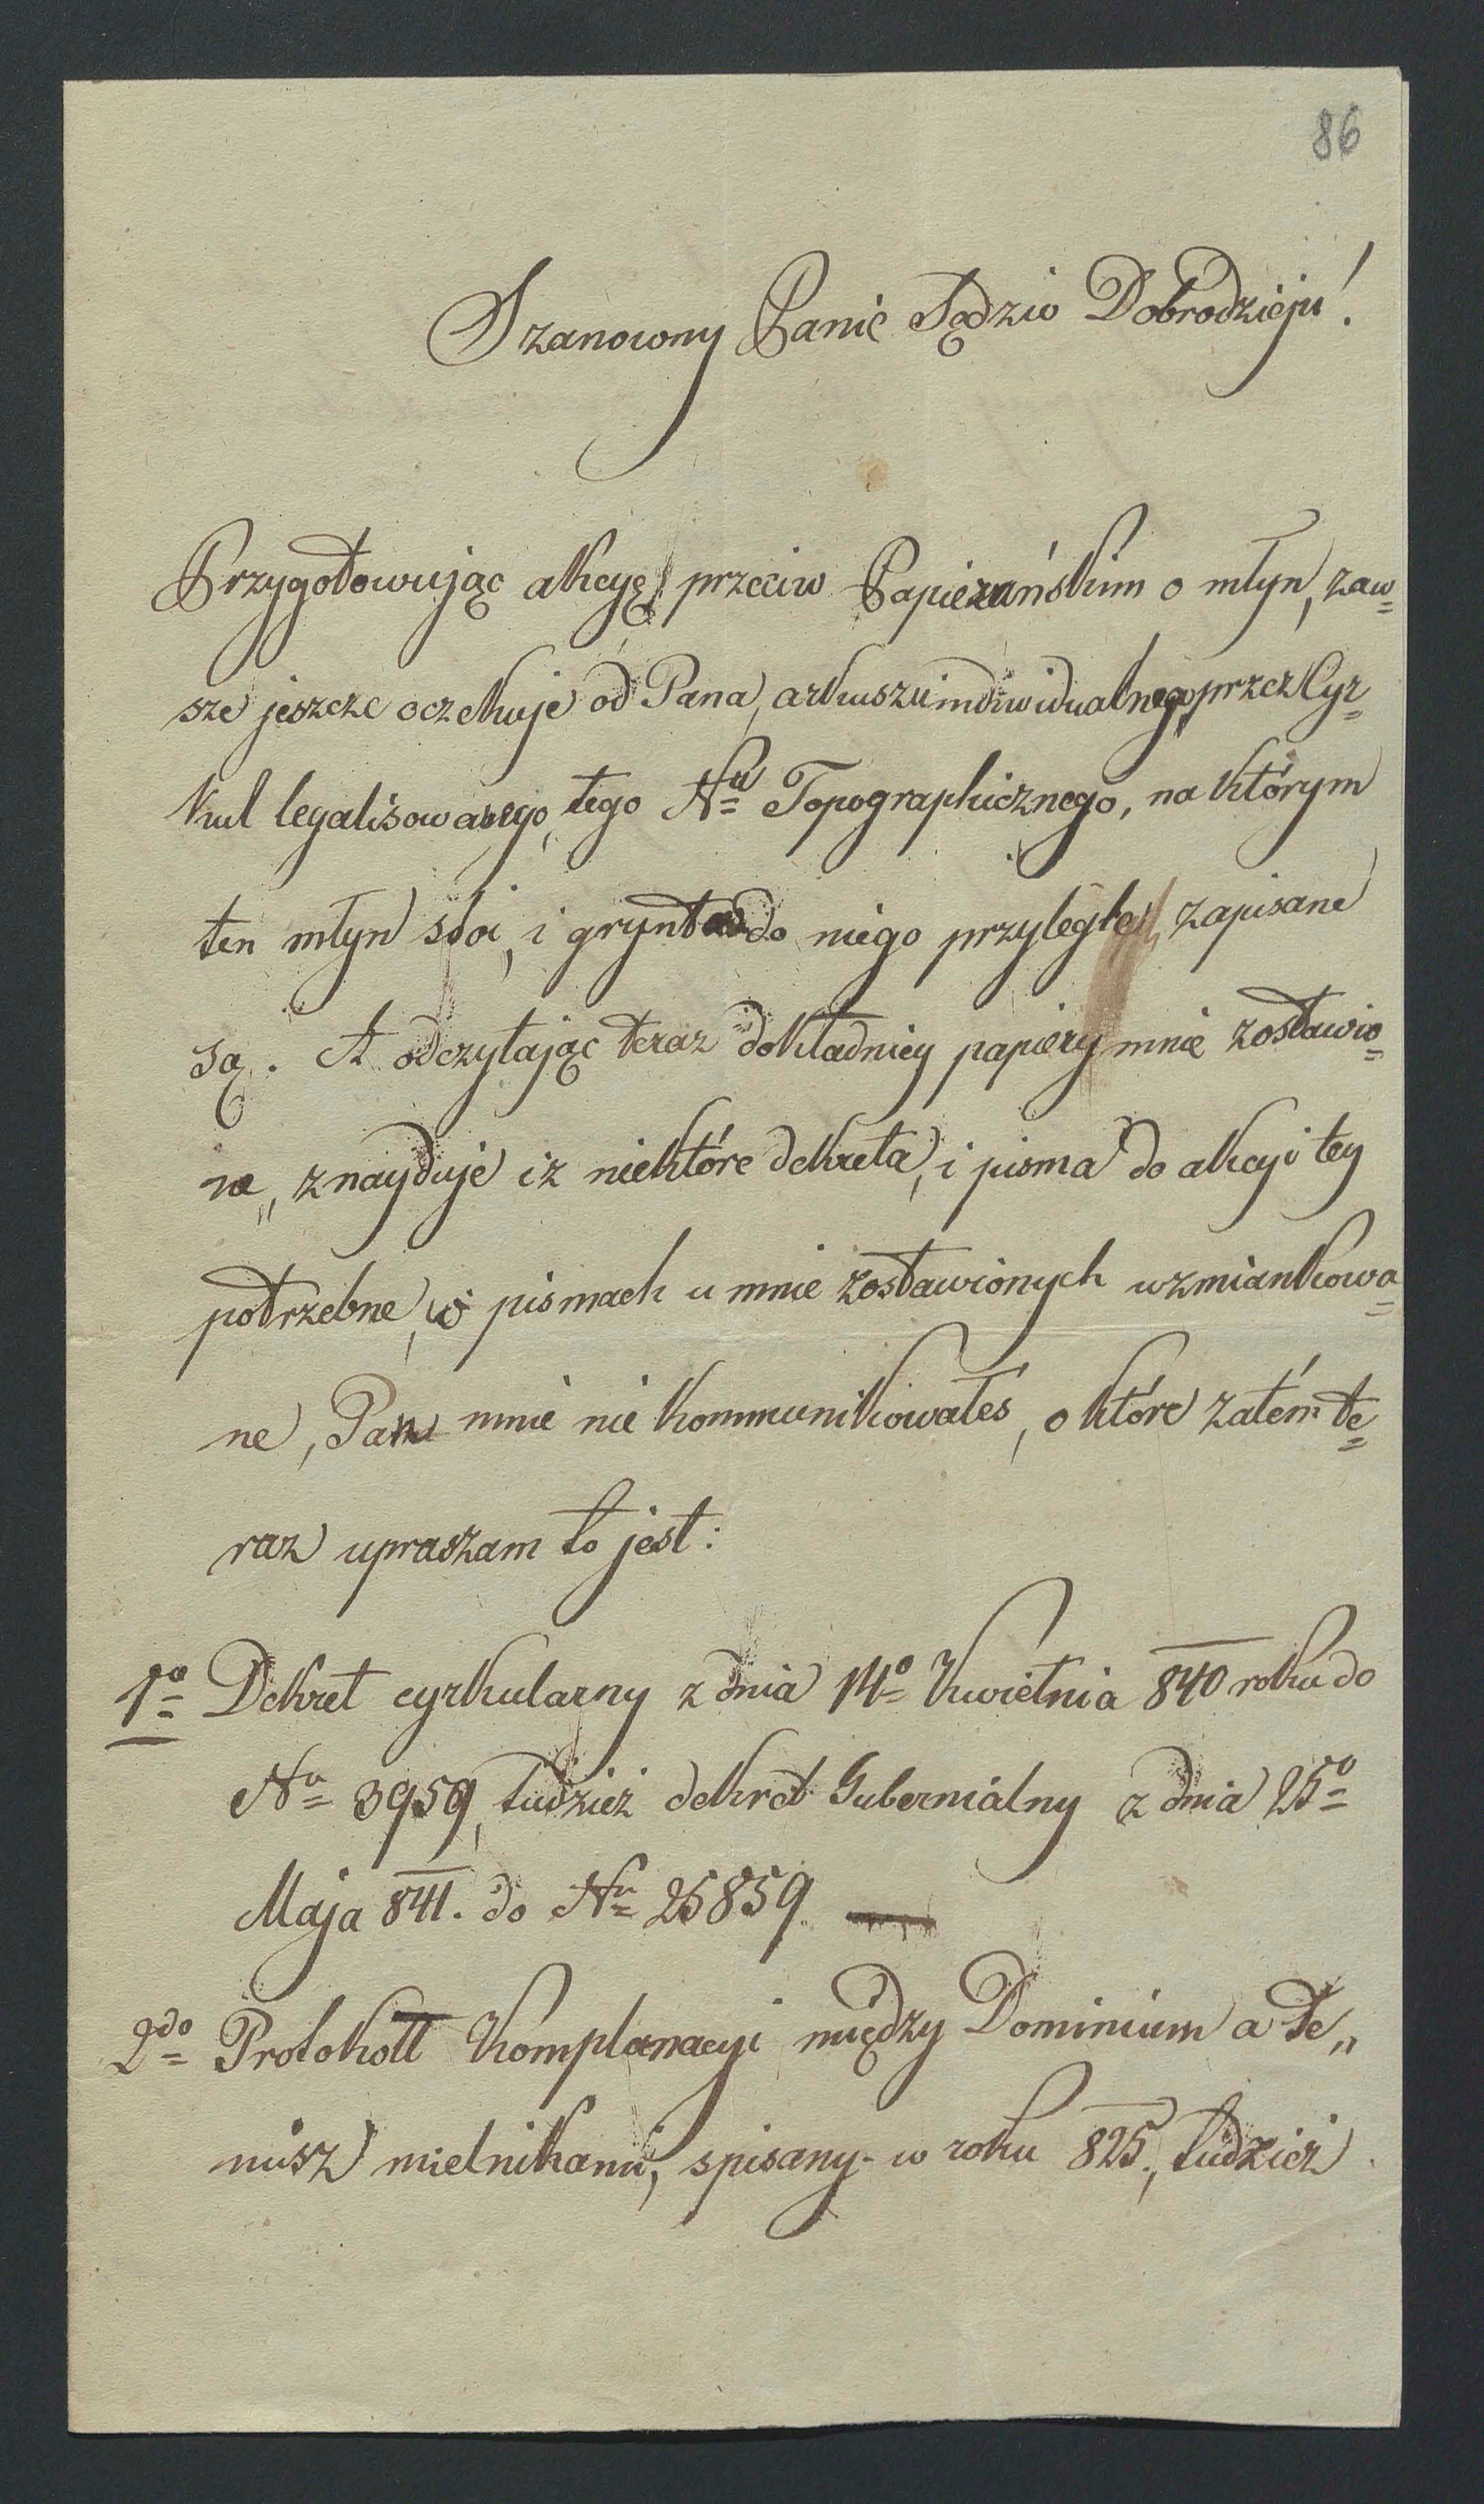 86
Szanowny Panie Sędzio Dobrodzieju!
Przygotowując akcyę przeciw Papierańskim o młyn, zaw=
sze jeszcze oczekuje od Pana, arkuszu indiwidualnego, przez Cyr=
kuł legalisowanego, tego Nu Topographicznego, na którym
ten młyn stoi, i grynta do niego przyległe, zapisane
są. A odczytając teraz dokładniey papiery mnie zostawio=
ne, znayduje iż niektóre dekreta, i pisma do akcyi tey
potrzebne, w pismach u mnie zostawionych wzmiankowa=
ne, Pan mnie nie kommunikowałeś, o które zatém te=
raz upraszam to jest:
1o Dekret cyrkularny z dnia 14o Kwietnia 840 roku do
Nu 3959, tudzież dekret Gubernialny z dnia 25o
Maja 841. do Nu 25859 —
2do Protokołł Komplanacyi między Dominium a Te„
nisz mielnikami, spisany w roku 825., tudzież